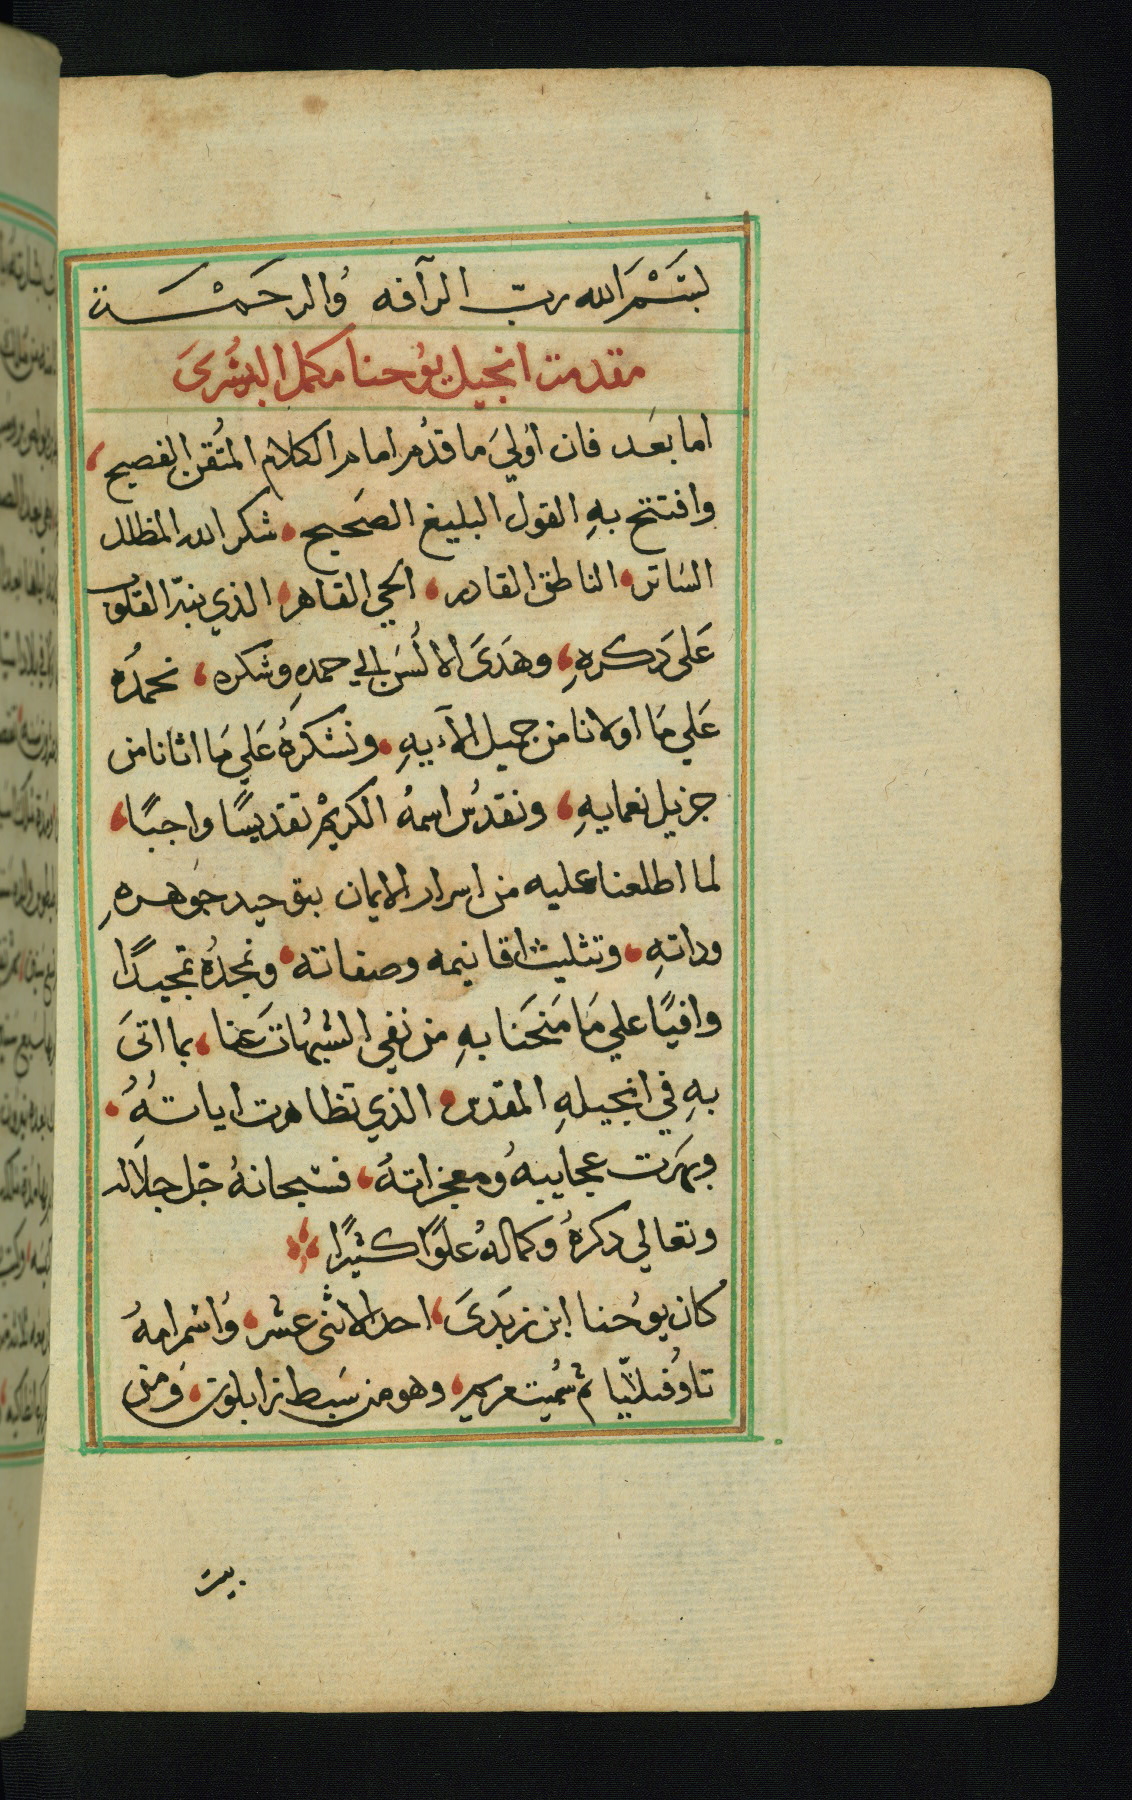 بسم الله رب الرآفه والرحمة
مقدمت انجيل يوحنا مكمل البشرى
اما بعد فان اولي ما قدم امام الكلام المتقن الفصيح
وافتتح به القول البليغ الصحيح شكر الله المظلل
الساتر الناطق القادر الحي القاهر الذي نبّه القلوب
على دكره وهدى الالسن الي حمده وشكره نحمده
علي ما اولانا من جميل الآءيه ونشكره علي ما اتانا من
جزيل نعمايه ونقدس اسمه الكريم تقديسًا واجبًا
لما اطلعنا عليه من اسرار الايمان بتوحيد جوهره
وداته وتثليث اقانيمه وصفاته ونمجده تمجيدًا
وافيًا علي ما منحنا به من نفي الشبهات عنا بما اتى
به في انجيله المقدس الذي تظاهرت اياته
وبهرت عجايبه ومعجزاته فسبحانه جل جلاله
وتعالي دكره وكماله علوًا كثيرًا
كان يوحنا ابن زبدى احد الاثنى عشر واسم امه
تاوفيليا ثم سميت مريم وهو من سبط زابلون ومن
بيت